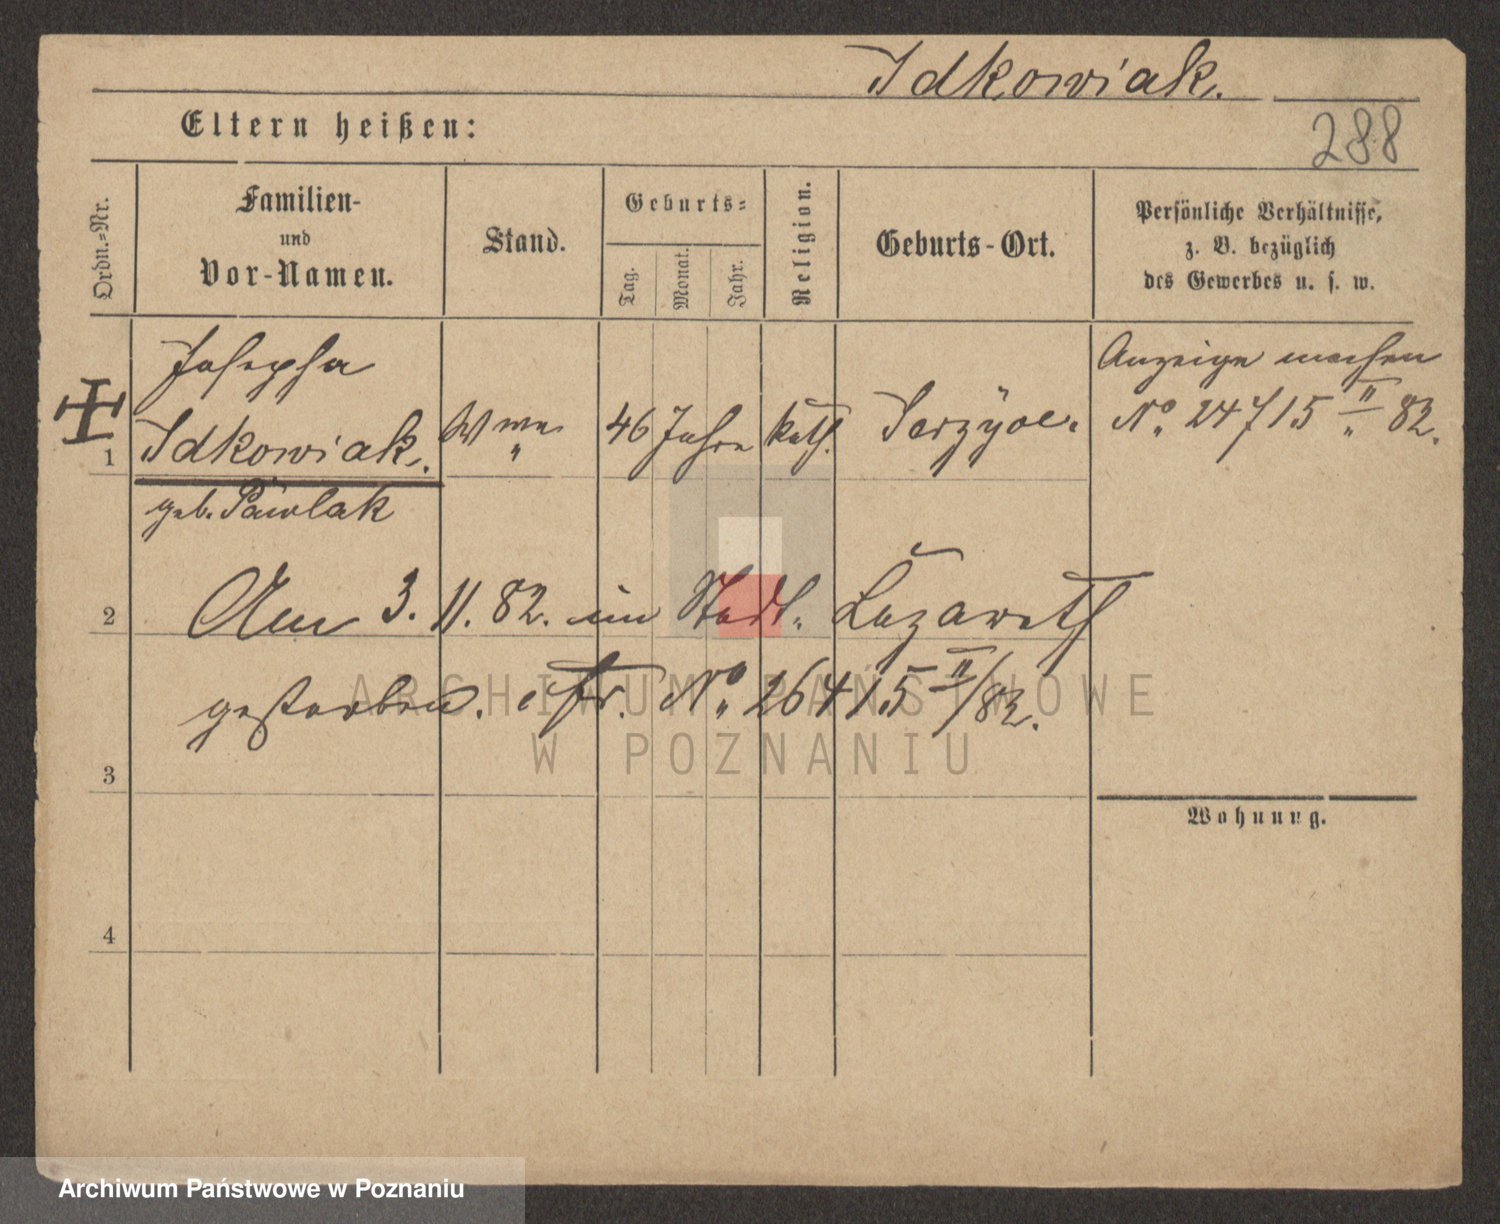 Idkowiak.
Eltern heißen:
288
Ordn.=Nr.
Familien-
und
Vor-Namen.
Stand.
Geburts=
Tag.
Monat.
Jahr.
Religion.
Geburts-Ort.
Persönliche Verhältnisse,
z. B. bezüglich
des Gewerbes u. s. w.
1
Josepha
Idkowiak.
geb. Pawlak
Wwe
46 Jahre
kath.
Anzeige machen
No. 24715 II 82.
2
Am 3. 11. 82. im Stadt. Lazareth
gestorben. cfr. No. 26415 II/82.
3
Wohnung.
4
ARCHIWUM PAŃSTWOWE
W POZNANIU
Archiwum Państwowe w Poznaniu